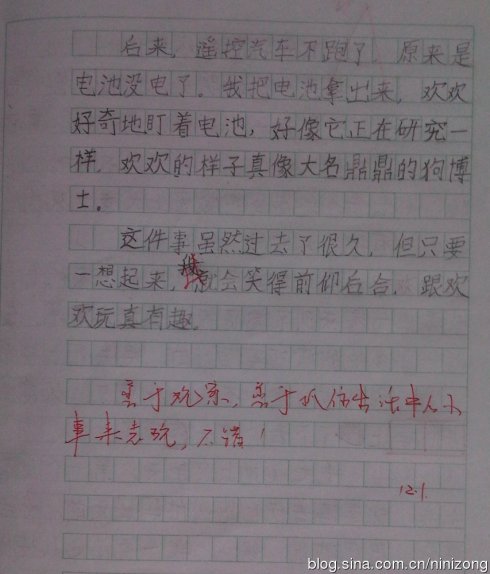 后来，遥控汽车不跑了，原来是
电池没电了。我把电池拿出来，欢欢
好奇地盯着电池，好像它正在研究一
样，欢欢的样子真像大名鼎鼎的狗博
士。
这件事虽然过去了很久，但只要
一想起来，我就会笑得前仰后合，跟欢
欢玩真有趣。
善于观察，善于抓住生活中的小
事来表现，不错！
12.1
blog.sina.com.cn/ninizong